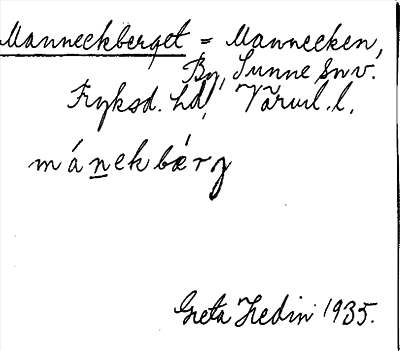 Manneckberget = Mannecken,
By, Sunne Snv.
Fryksd. hd, Värml. l.
mánekbærg
Greta Hedin 1935.